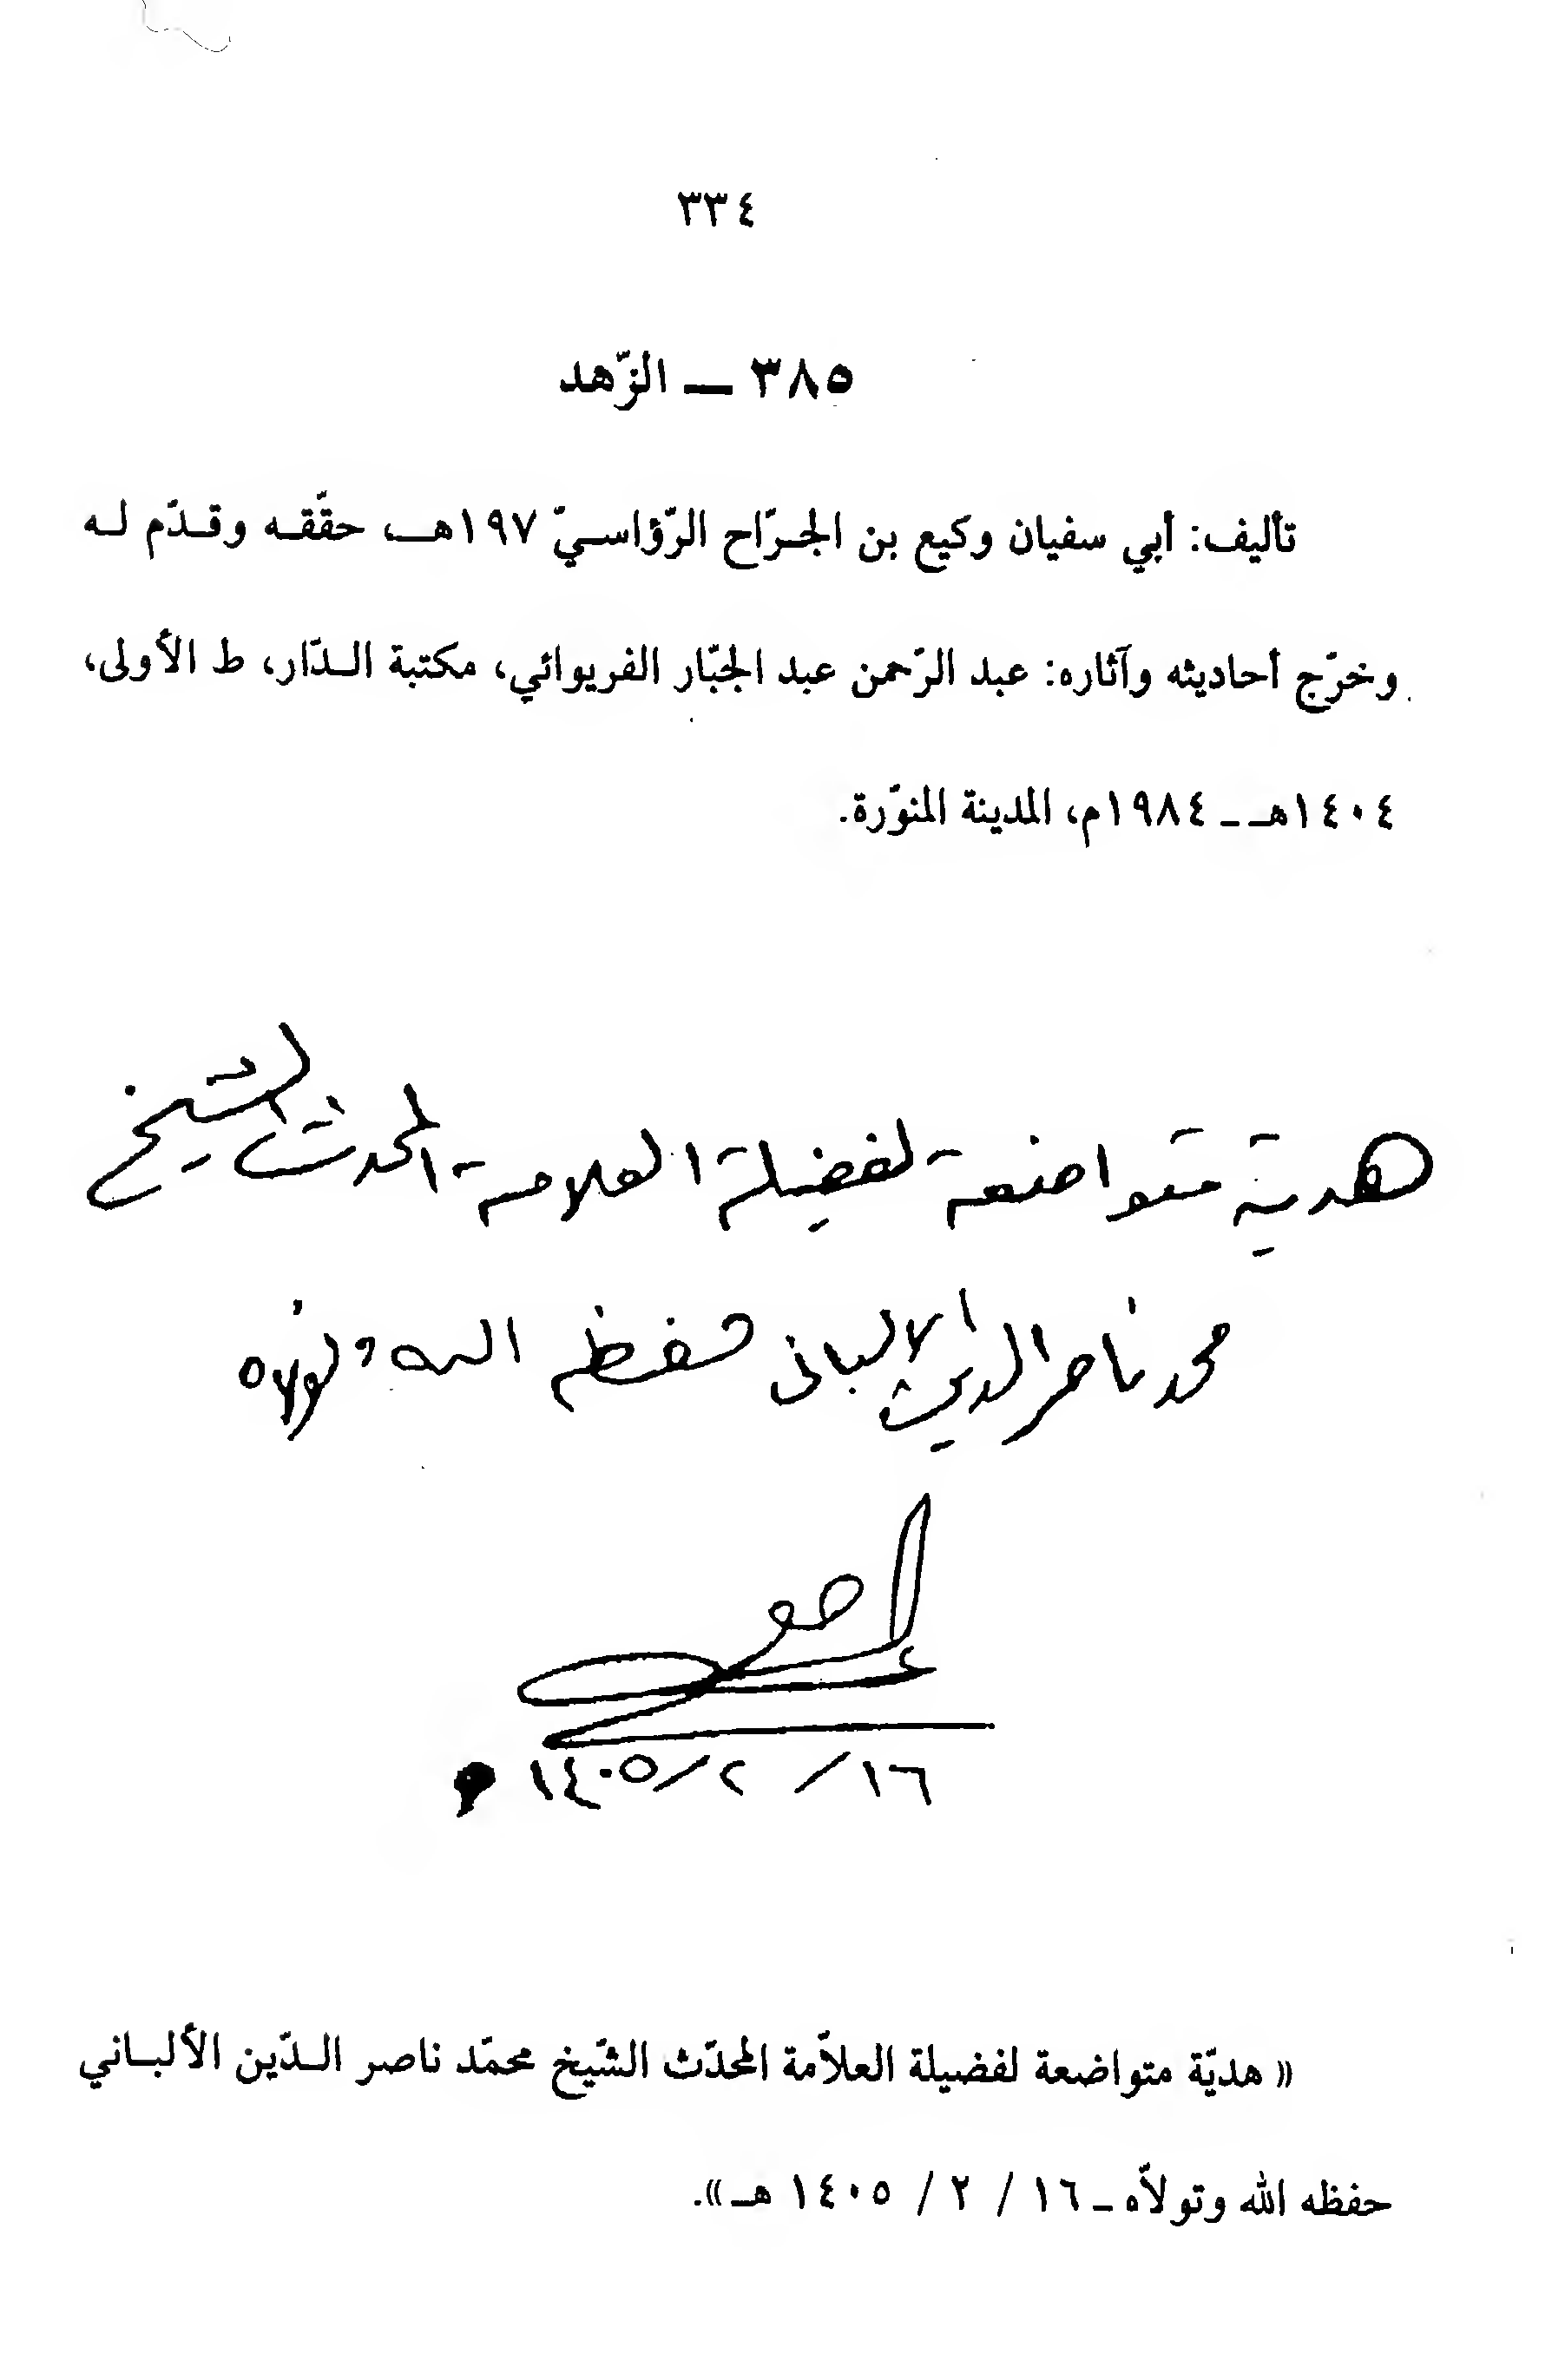 ٣٣٤
٣٨٥ ــ الزّهد
تأليف: أبي سفيان وكيع بن الجـرّاح الرّؤاسـيّ ١٩٧هـ، حقّقـه وقـدّم لـه
وخرّج أحاديثه وآثاره: عبد الرّحمن عبد الجبّار الفريوائي، مكتبة الـدّار، ط الأولى،
١٤٠٤هـ ـ ١٩٨٤م، المدينة المنوّرة.
هدية متواضعة لفضيلة العلامة المحدث الشيخ
محمد ناصر الدين الالباني حفظه الله وتولاه
١٦/ ٢/ ١٤٠٥
« هديّة متواضعة لفضيلة العلاّمة المحدّث الشّيخ محمّد ناصر الـدّين الألبـاني
حفظه الله وتولاّه ـ ١٦ / ٢ / ١٤٠٥ هـ».